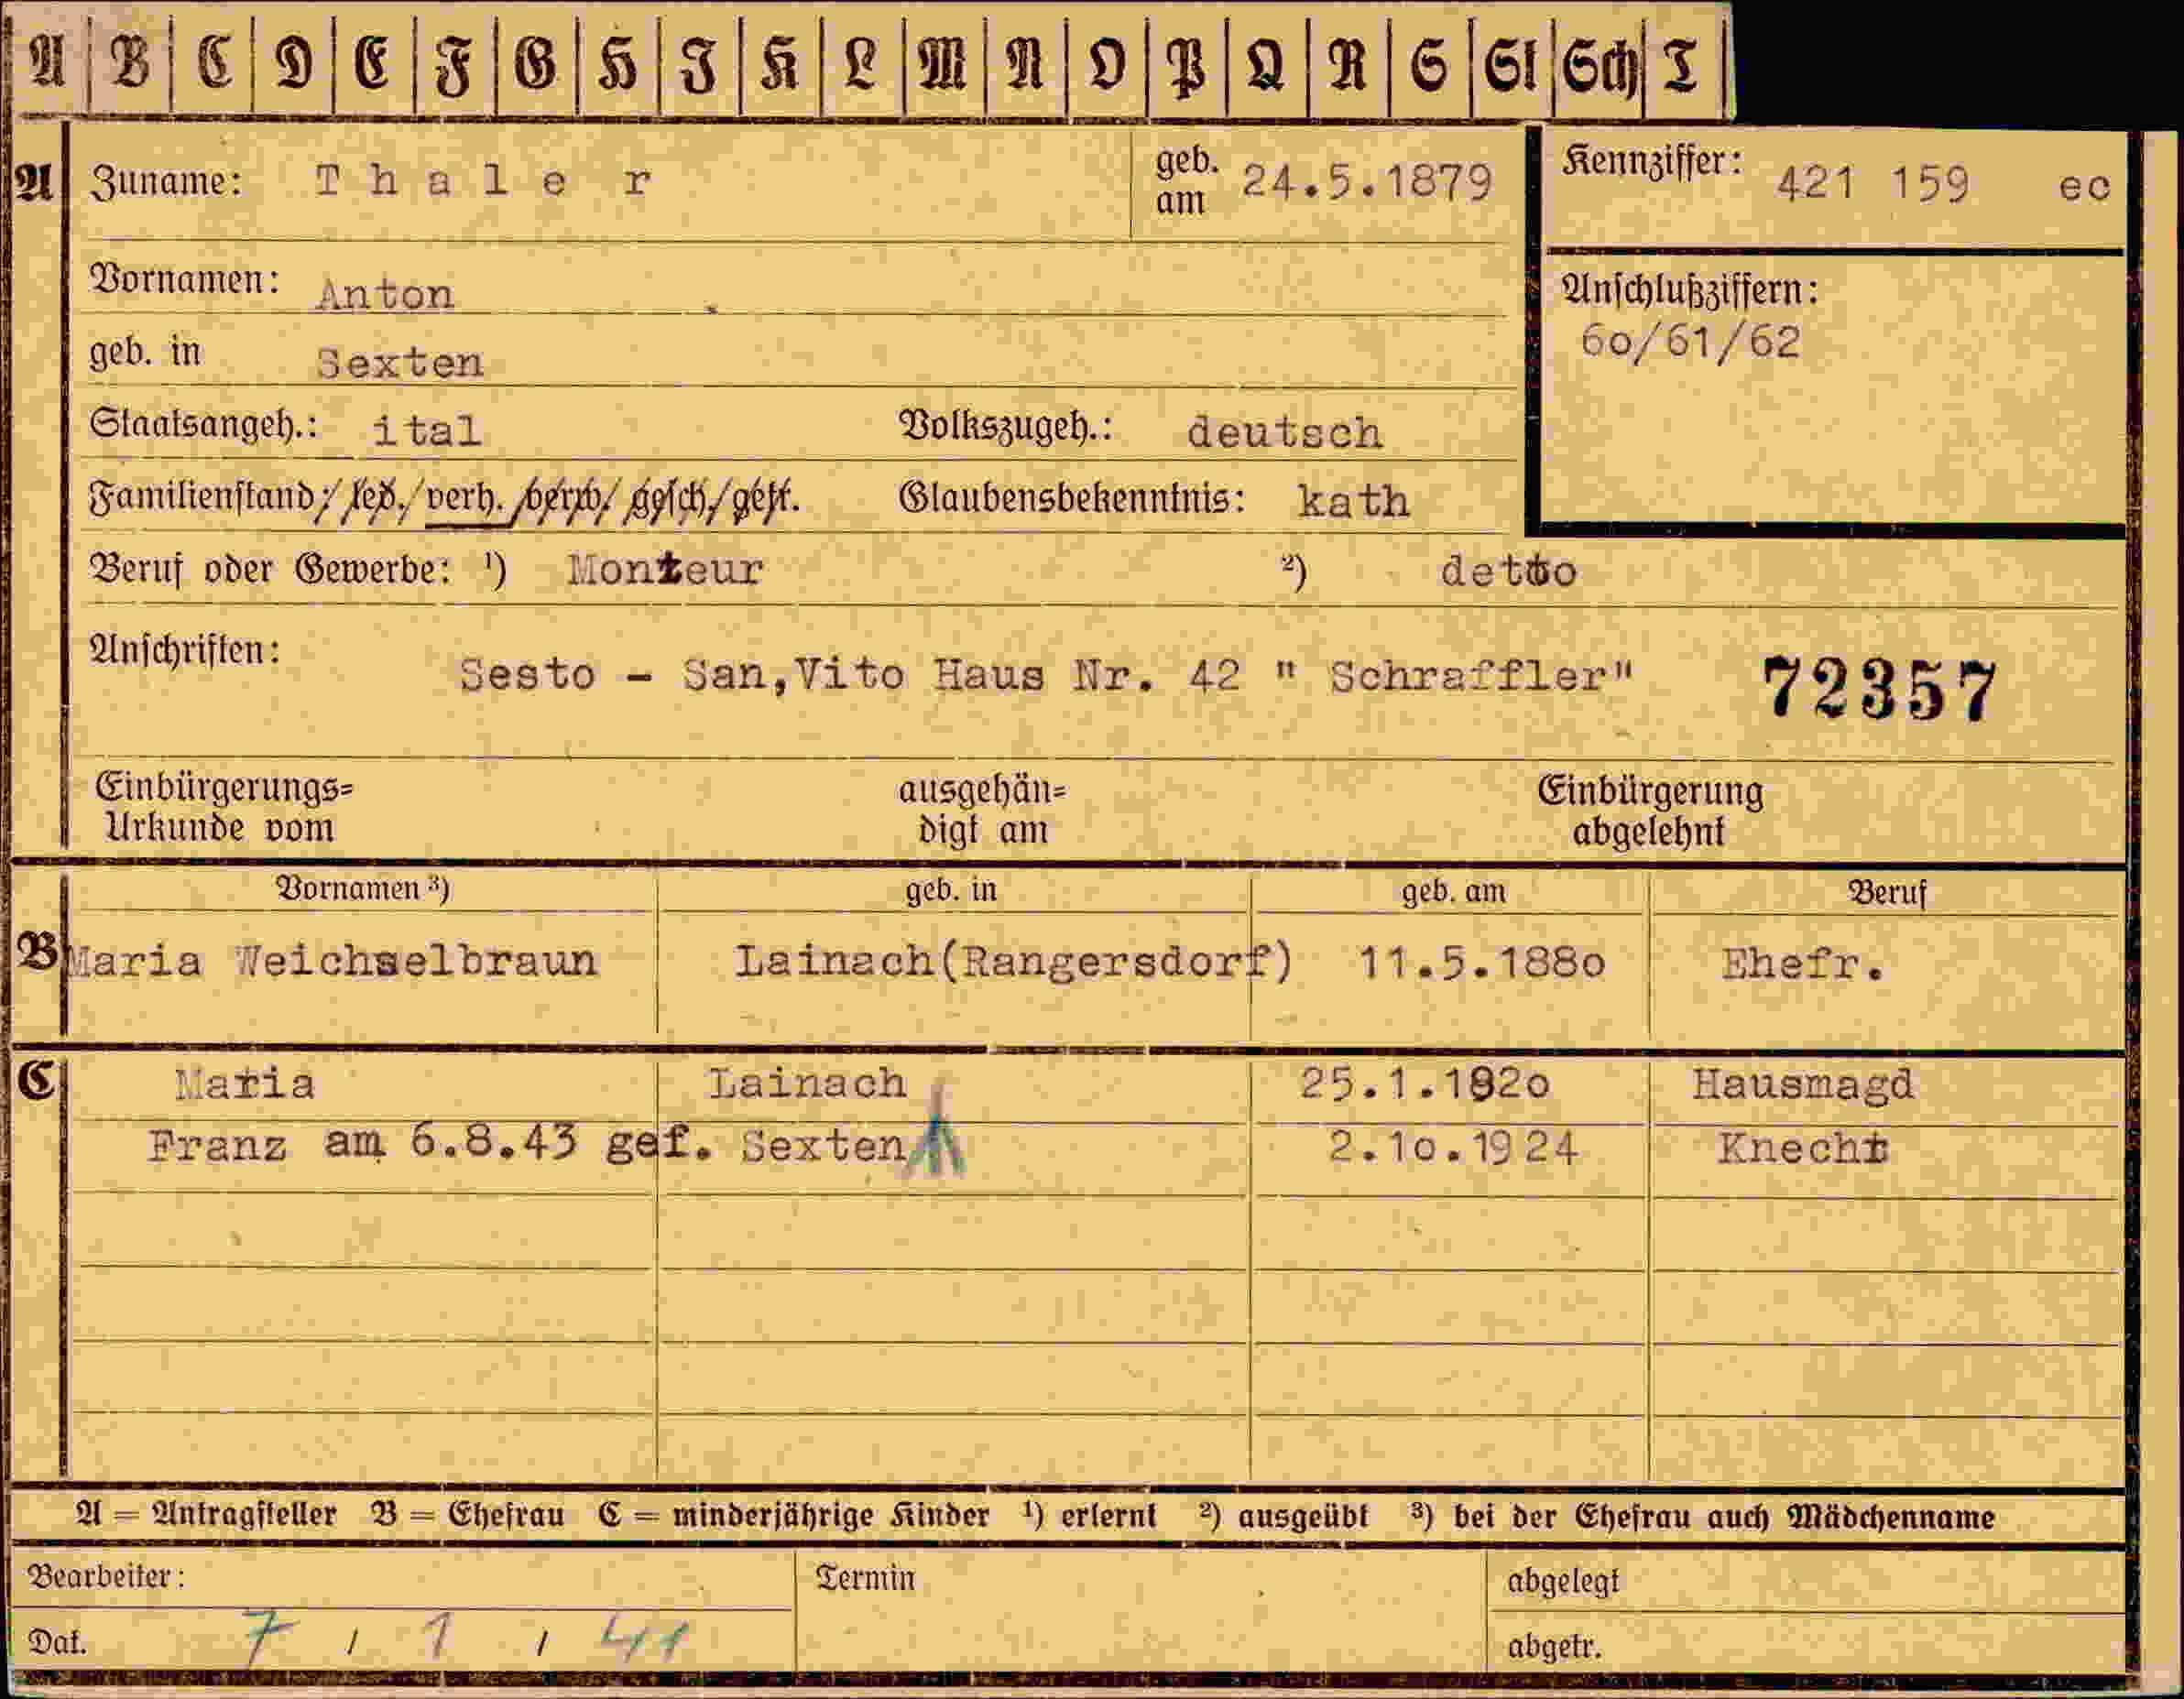 A B C D E F G H I K L M N O P Q R S St Sch T
A Zuname: Thaler geb. am 24.5.1879 Kennziffer: 421 159 eo
Vornamen: Anton
Anschlußziffern:
60/61/62
geb. in Sexten
Staatsangeh.: ital Volkszugeh.: deutsch
Familienstand: / led. / verh. / verw. / gesch. / getr. Glaubensbekenntnis: kath
Beruf oder Gewerbe: ¹) Monteur ²) detto
Anschriften: Sesto - San,Vito Haus Nr. 42 " Schraffler" 72357
Einbürgerungs=
Urkunde vom
ausgehän=
digt am
Einbürgerung
abgelehnt
Vornamen ³) geb. in geb. am Beruf
B Maria Weichselbraun Lainach(Rangersdorf) 11.5.1880 Ehefr.
C Maria Lainach 25.1.1920 Hausmagd
Franz am 6.8.43 gef. Sexten 2.10.1924 Knecht
A = Antragsteller B = Ehefrau C = minderjährige Kinder ¹) erlernt ²) ausgeübt ³) bei der Ehefrau auch Mädchenname
Bearbeiter: Termin abgelegt
Dat. 7 / 1 / 41 abgetr.